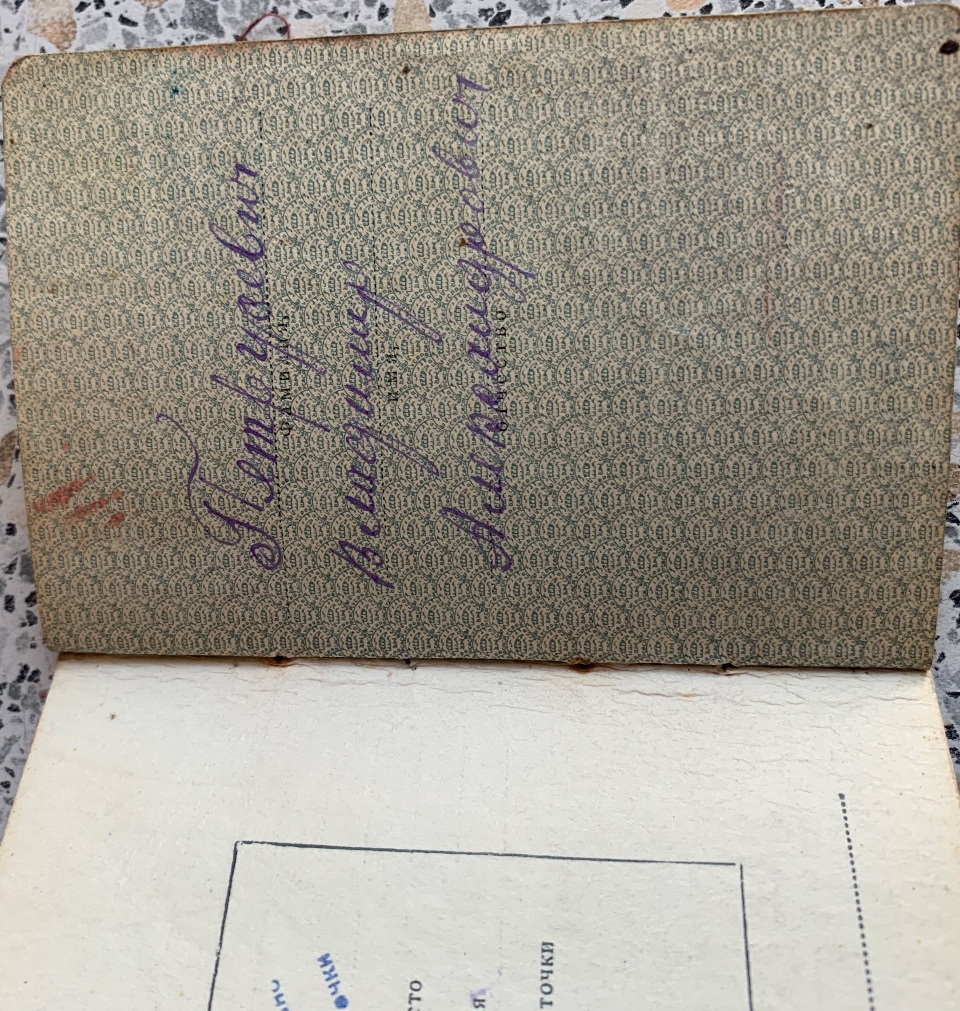 Петрусевич
ФАМИЛИЯ
Владимир
ИМЯ
Александрович
ОТЧЕСТВО
очки
сто
я
точки